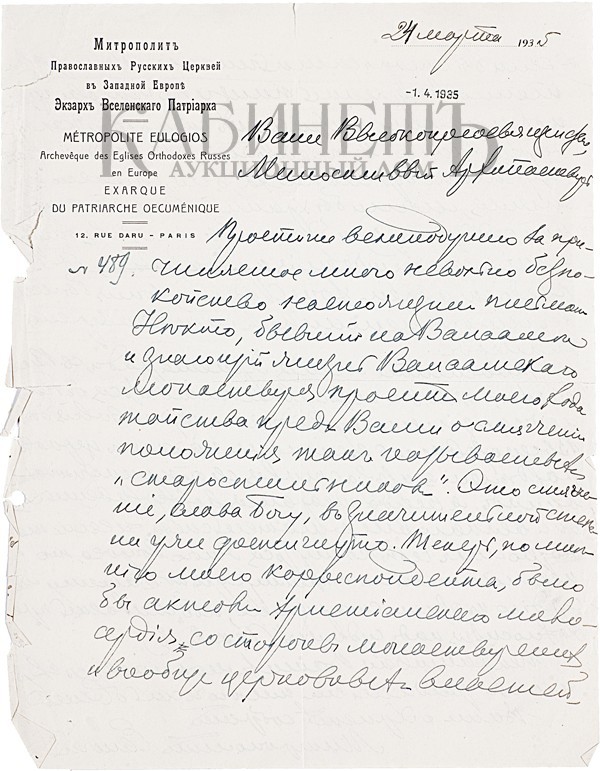 24 марта 1935
Митрополитъ
Православныхъ Русскихъ Церквей
въ Западной Европѣ
Экзархъ Вселенскаго Патріарха
-1. 4. 1935
КАБИНЕТЪ
АУКЦИОННЫЙ ДОМ
MÉTROPOLITE EULOGIOS
Archevêque des Eglises Orthodoxes Russes
en Europe
EXARQUE
DU PATRIARCHE OECUMÉNIQUE
12, RUE DARU - PARIS
Ваше Высокопреосвященство,
Милостивый Архипастырь
Простите великодушно за при-
№ 489. чиняемое мною невольно безпо-
койство настоящим письмом.
Некто, бывший на Валааме
и знающий жизнь Валаамскаго
монастыря просит моего хода-
тайства пред Вами о смягчении
положения там называемых
„старостильников". Это смягче-
ніе, слава Богу, в значительной степе-
ни уже достигнуто. Теперь, по мне-
нію моего корреспондента, было
бы актом христіанскаго мило-
сердія со стороны монастырских
и вообще церковных властей